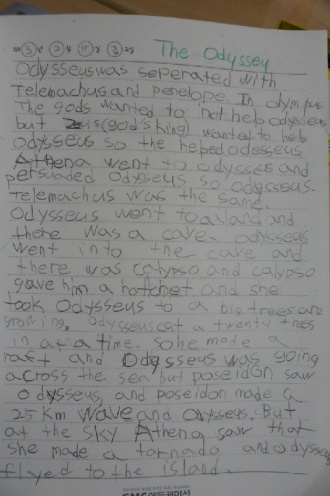 ③ ② ⑪ ③ The Odyssey
Odysseus was seperated with
Telemachus and penelope. In olympus
The gods wanted to not help odysseus
but Zeus(god's king) wanted to help
Odysseus so the helped odesseus
Athena went to odysseus and
persuaded Odysseus, so odysseus-
Telemachus was the same.
Odysseus went to and
there was a cave. odysseus
went into the cave and
there was calypso and calypso
gave him a hatchet and she
took Odysseus to a big trees are
growing. Odysseus cat a twenty trees
in at a time. So he made a
raft and Odysseus was going
across the sea but poseidon saw
Odysseus, and poseidon made a
25 Km wave and odysseus. But
at the sky Athena saw that
she made a tornado and odysseus
flyed to the island.